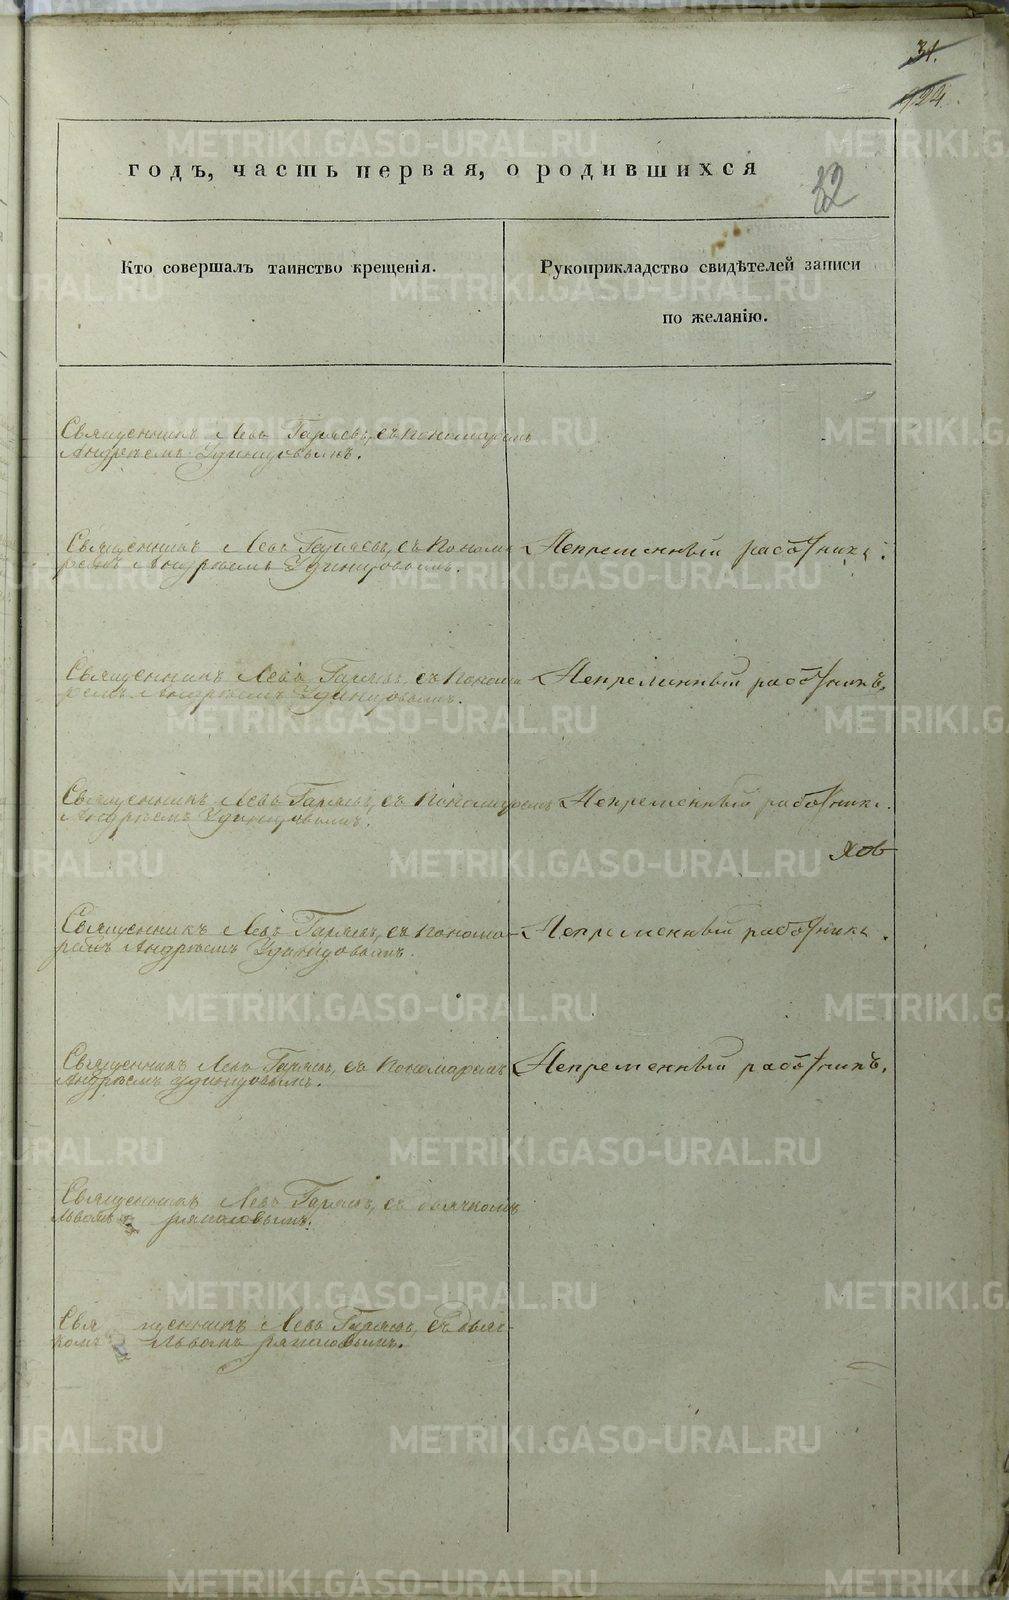 31.
124.
годъ, часть первая, о родившихся
32
Кто совершалъ таинство крещенія.
Рукоприкладство свидѣтелей записи
по желанію.
Священникъ Левъ Гаряевъ, съ пономаремъ
Андреемъ Удинцовымъ.
Священникъ Левъ Гаряевъ, съ Понома
ремъ Андреемъ Удинцовымъ.
Непременный работникъ.
Священникъ Левъ Гаряевъ, съ Понома
ремъ Андреемъ Удинцовымъ.
Непременный работникъ,
Священникъ Левъ Гаряевъ, съ Пономаремъ
Андреемъ Удинцовымъ.
Непременный работникъ.
Священникъ Левъ Гаряевъ, съ Понома-
ремъ Андреемъ Удинцовымъ.
Непременный работникъ.
Священникъ Левъ Гаряевъ, съ Пономаремъ
Андреемъ Удинцовымъ.
Непременный работникъ,
Священникъ Левъ Гаряевъ, съ дьячкомъ
Львомъ
Священникъ Левъ Гаряевъ, съ дьяч-
комъ Львомъ
METRIKI.GASO-URAL.RU